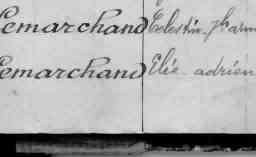 Lemarchand Célestin. Jh arm
Lemarchand Elie adrien